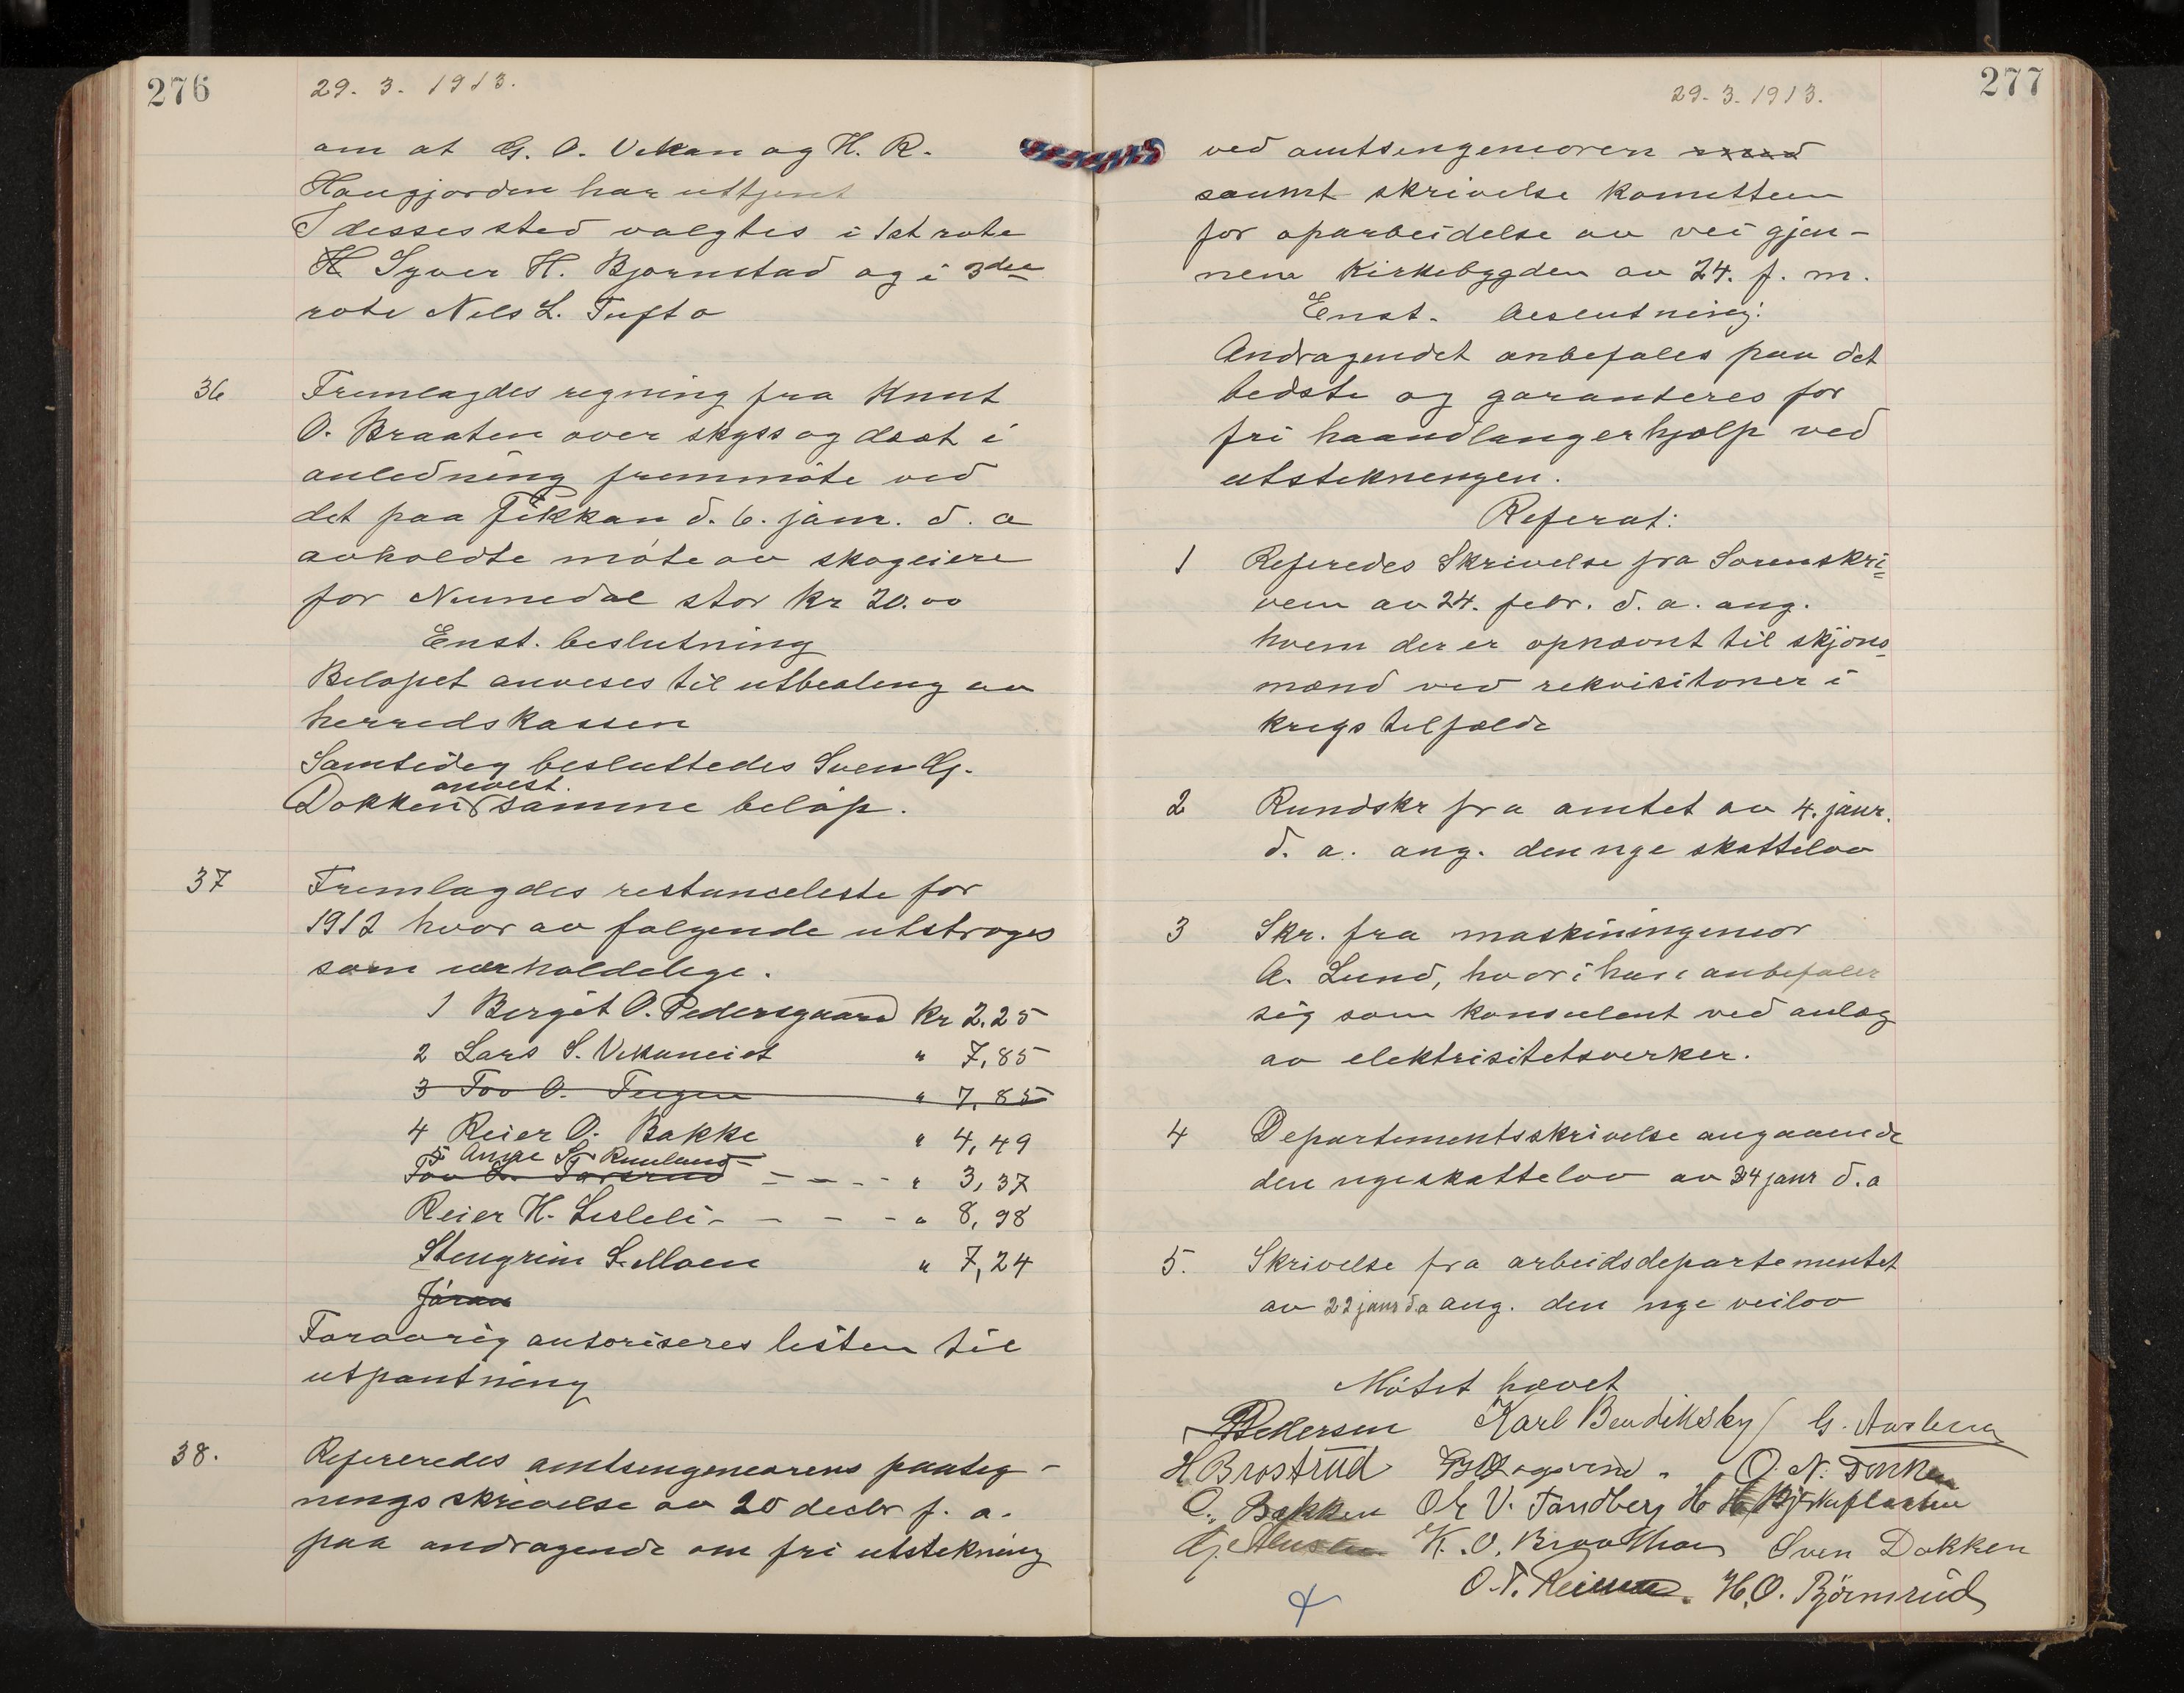 276
29. 3. 1913.
om at G. O. Vekan og H. R.
Haugjorden har uttjent
I desses sted valgtes i 1st rote
H Syver H. Bjørnstad og i 3die
rote Nels L. Tufto
36 Fremlagdes regning fra Knut
O. Braaten over skyss og diæt i
anledning fremmöte ved
det paa Fikkan d. 6. janr. d. a
avholdte möte av skogeiere
for Numedal stor kr 20.00
Enst. beslutning
Belöpet anvises til utbealing av
herredskassen
Samtideg besluttedes Sven G.
anvest.
Dokken samme belöp.
37 Fremlagdes restanceleste for
1912 hvor av følgende utstroges
som uerholdelige.
1 Bergit O. Pedersgaard kr 2.25
2 Lars S. Vekaneiet " 7,85
3 Tov O. Teigen " 7,85
4 Reier O. Bakke " 4,49
5 Anne S. Ruuland
Tov - - - " 3,37
Reier H. Lisleli - - - - " 8,98
Stengrim S. Moen " 7,24
Jöran
Foravrig autoriseres listen til
utpantning
38. Refereredes amtsingenearens paateg-
nings skrivelse av 20 decbr f. a.
paa andragende om fri utstekning
277
29. 3. 1913.
ved amtsingenioren
saumt skrivelse komitteen
for oparbeidelse av vei gjen-
nem Kirkebygden av 24. f. m.
Enst. beslutning:
Andragendet anbefales paa det
bedste og garanteres for
fri haandlangerhjælp ved
utstekningen.
Referat:
1 Referedes Skrivelse fra Sorenskri-
veren av 24. febr. d. a. ang.
hvem der er opnævnt til skjöns-
mænd ved rekvisitoner i
kregstelfælde
2 Rundskr fra amtet av 4. janr.
d. a. ang. den nye skattelov
3 Skr. fra maskiningeniør
A. Lund, hvori han anbefaler
sig som konsulent ved anlæg
av elektrisitetsverker.
4 Departementsskrivelse angaaende
den nye skattelov av 24 janr d. a
5. Skrivelse fra arbeidsdepartementet
av 22 janr d. a ang. den nye veilov
Mötet hævet
Pedersen Karl Bendiksby G. Aaslena
H Brostrud O. N. Dokken
O. Bakken Ole V. Tandberg H H Björkeflaaten
K. O. Braathen Sven Dokken
O. T. H. O. Björnsrud